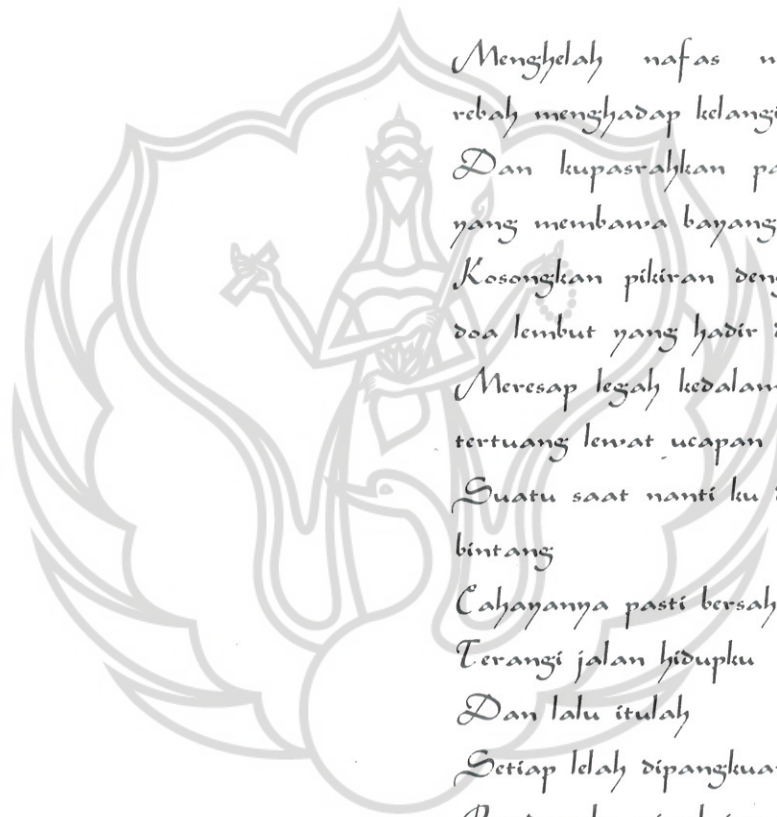 Menghelah nafas
rebah menghadap
Dan kupasrahkan
yang membawa
Kosongkan pikiran
doa lembut yang hadir
Meresap legah
tertuang lewat ucapan
Suatu saat nanti ku
bintang
Cahayanya pasti
Terangi jalan hidupku
Dan lalu itulah
Setiap lelah